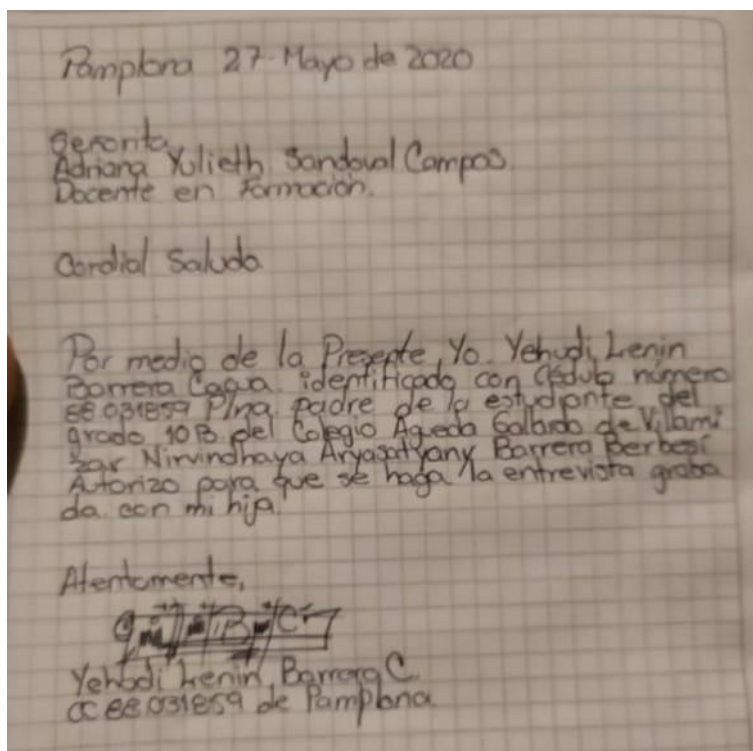 Pamplona 27 Mayo de 2020
Señorita
Adriana Yulieth Sandoval Campos
Docente en Formación.
Cordial Saludo
Por medio de la Presente, Yo. Yehudi Lenin
Barrera identificado con Cédula número
88 031859 P/na padre de la estudiante del
grado 10B del Colegio Agueda Gallardo de Villami
zar Nirvindhaya Aryasatyany Barrera Berbesí
Autorizo para que se haga la entrevista graba
da con mi hija.
Atentamente,
Yehudi Lenin Barrera C.
CC 88 031859 de Pamplona